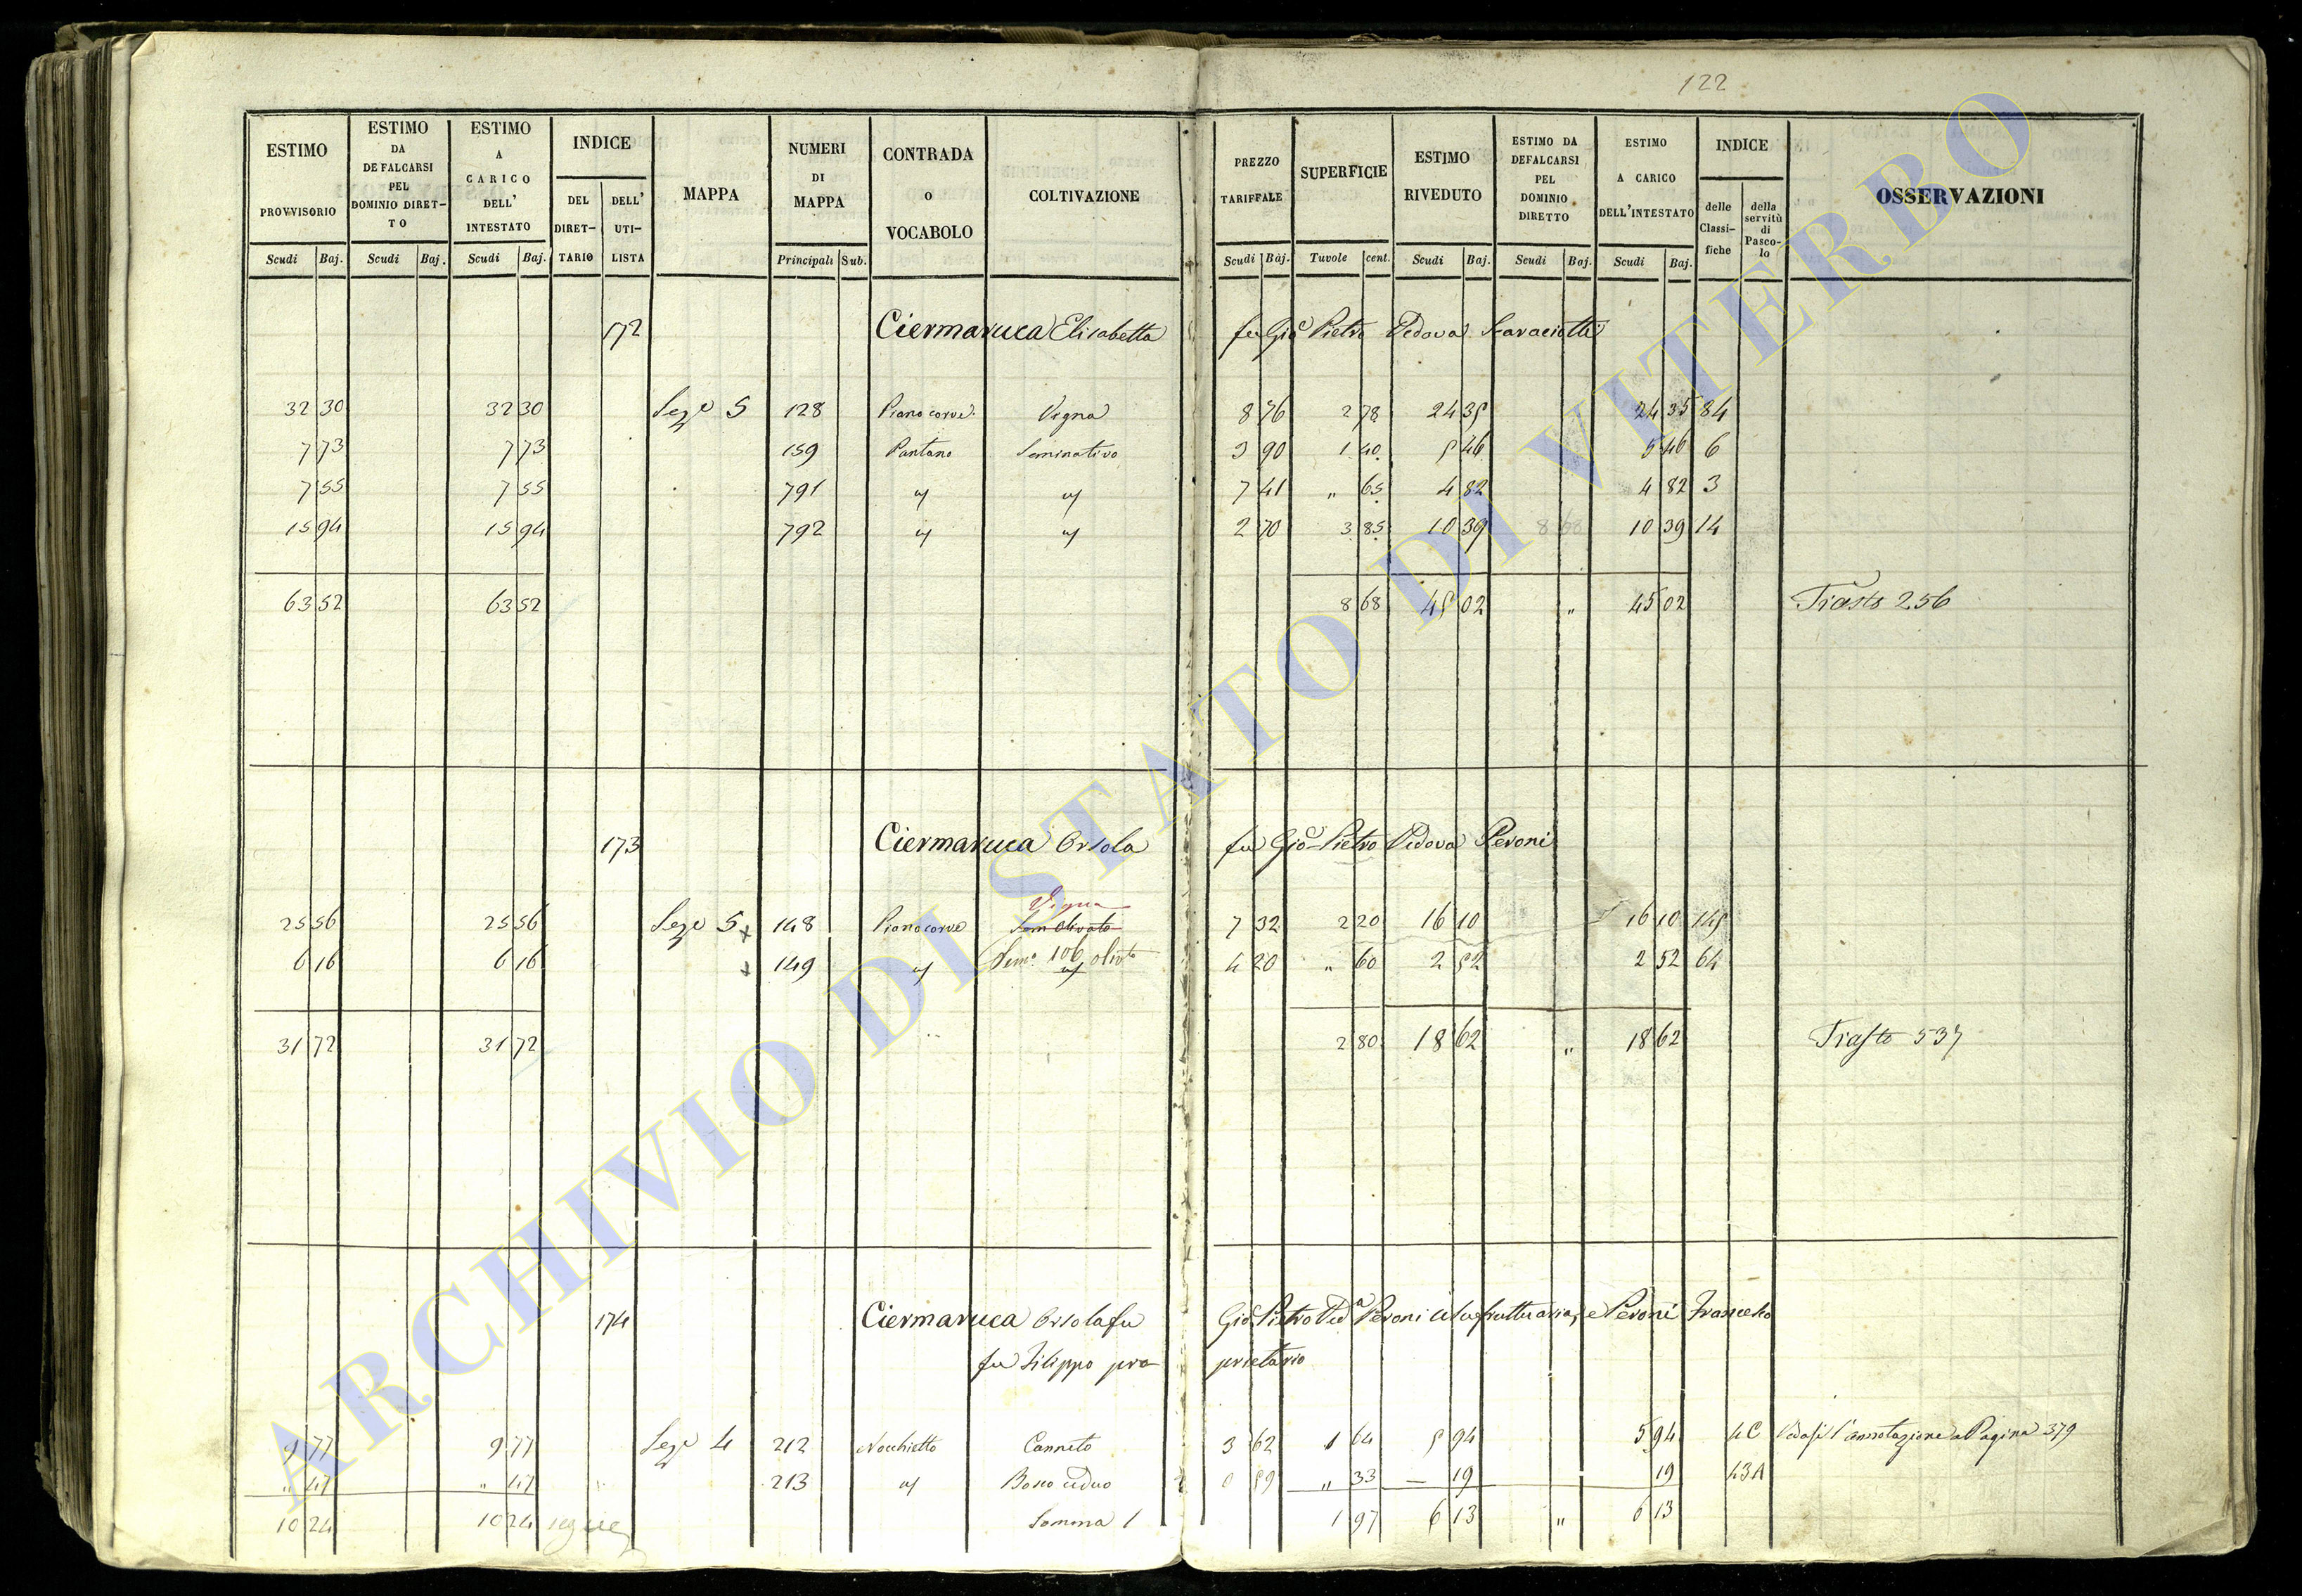 122
ESTIMO PROVVISORIO | ESTIMO DA DEFALCARSI PEL DOMINIO DIRETTO | ESTIMO A CARICO DELL' INTESTATO | INDICE | MAPPA | NUMERI DI MAPPA | CONTRADA o VOCABOLO | COLTIVAZIONE | PREZZO TARIFFALE | SUPERFICIE | ESTIMO RIVEDUTO | ESTIMO DA DEFALCARSI PEL DOMINIO DIRETTO | ESTIMO A CARICO DELL'INTESTATO | INDICE | OSSERVAZIONI
DEL DIRETTARIO | DELL' UTILISTA | delle Classifiche | della servitù di Pascolo
Scudi | Baj. | Scudi | Baj. | Scudi | Baj. | Principali | Sub. | Scudi | Baj. | Tavole | cent. | Scudi | Baj. | Scudi | Baj. | Scudi | Baj.
172 Ciermaruca Elisabetta fu Gio Pietro Vedova
32 30 | 32 30 | Sez.e 5 | 128 | Pianocorve | Vigna | 8 76 | 2 78 | 24 35 | 24 35 | 84
7 73 | 7 73 | 159 | Pantano | Seminativo | 3 90 | 1 40 | 5 46 | 5 46 | 6
7 55 | 7 55 | 791 | " | " | 7 41 | " 65 | 4 82 | 4 82 | 3
15 94 | 15 94 | 792 | " | " | 2 70 | 3 85 | 10 39 | 10 39 | 14
63 52 | 63 52 | 8 68 | 45 02 | " | 45 02 | Trasto 256
173 Ciermaruca Orsola fu Gio Pietro Vedova Peroni
Vigna
25 56 | 25 56 | Sez.e 5 x | 148 | Pianocorve | Sem olivato | 7 32 | 2 20 | 16 10 | 16 10 | 145
6 16 | 6 16 | x | 149 | " | Sem.o 106 olivto " | 4 20 | " 60 | 2 52 | 2 52 | 64
31 72 | 31 72 | 2 80 | 18 62 | " | 18 62 | Trasto 537
174 Ciermaruca Orsola fu Gio Pietro Ved.a Peroni Usufruttuaria, e Peroni Francesco
fu Filippo proprietario
9 77 | 9 77 | Sez.e 4 | 212 | Nocchietto | Canneto | 3 62 | 1 64 | 5 94 | 5 94 | 4C | Vedasi l'annotazione a Pagina 379
" 47 | " 47 | 213 | " | Bosco ceduo | 0 59 | " 33 | — 19 | 19 | 43A
10 24 | 10 24 | segue | Somma 1 | 1 97 | 6 13 | " | 6 13
ARCHIVIO DI STATO DI VITERBO